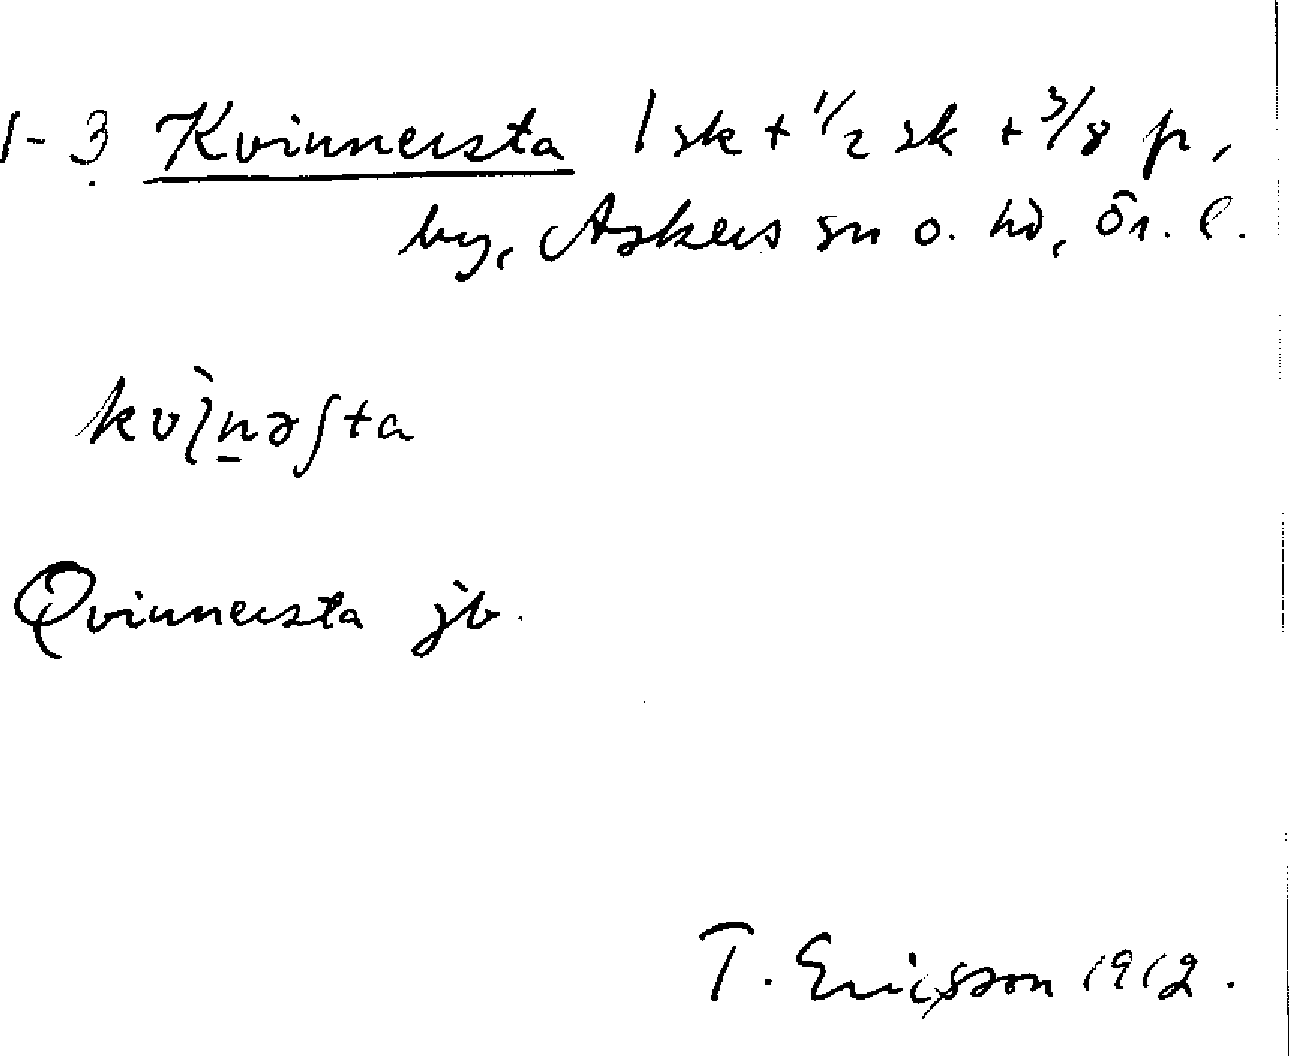 1-3 Kvinnersta 1 sk + 1/2 sk + 3/8 p,
by, Askers sn o. hd, Ör. l.
kvì̱nəʃta
Qvinnersta jb.
T. Ericsson 1912.